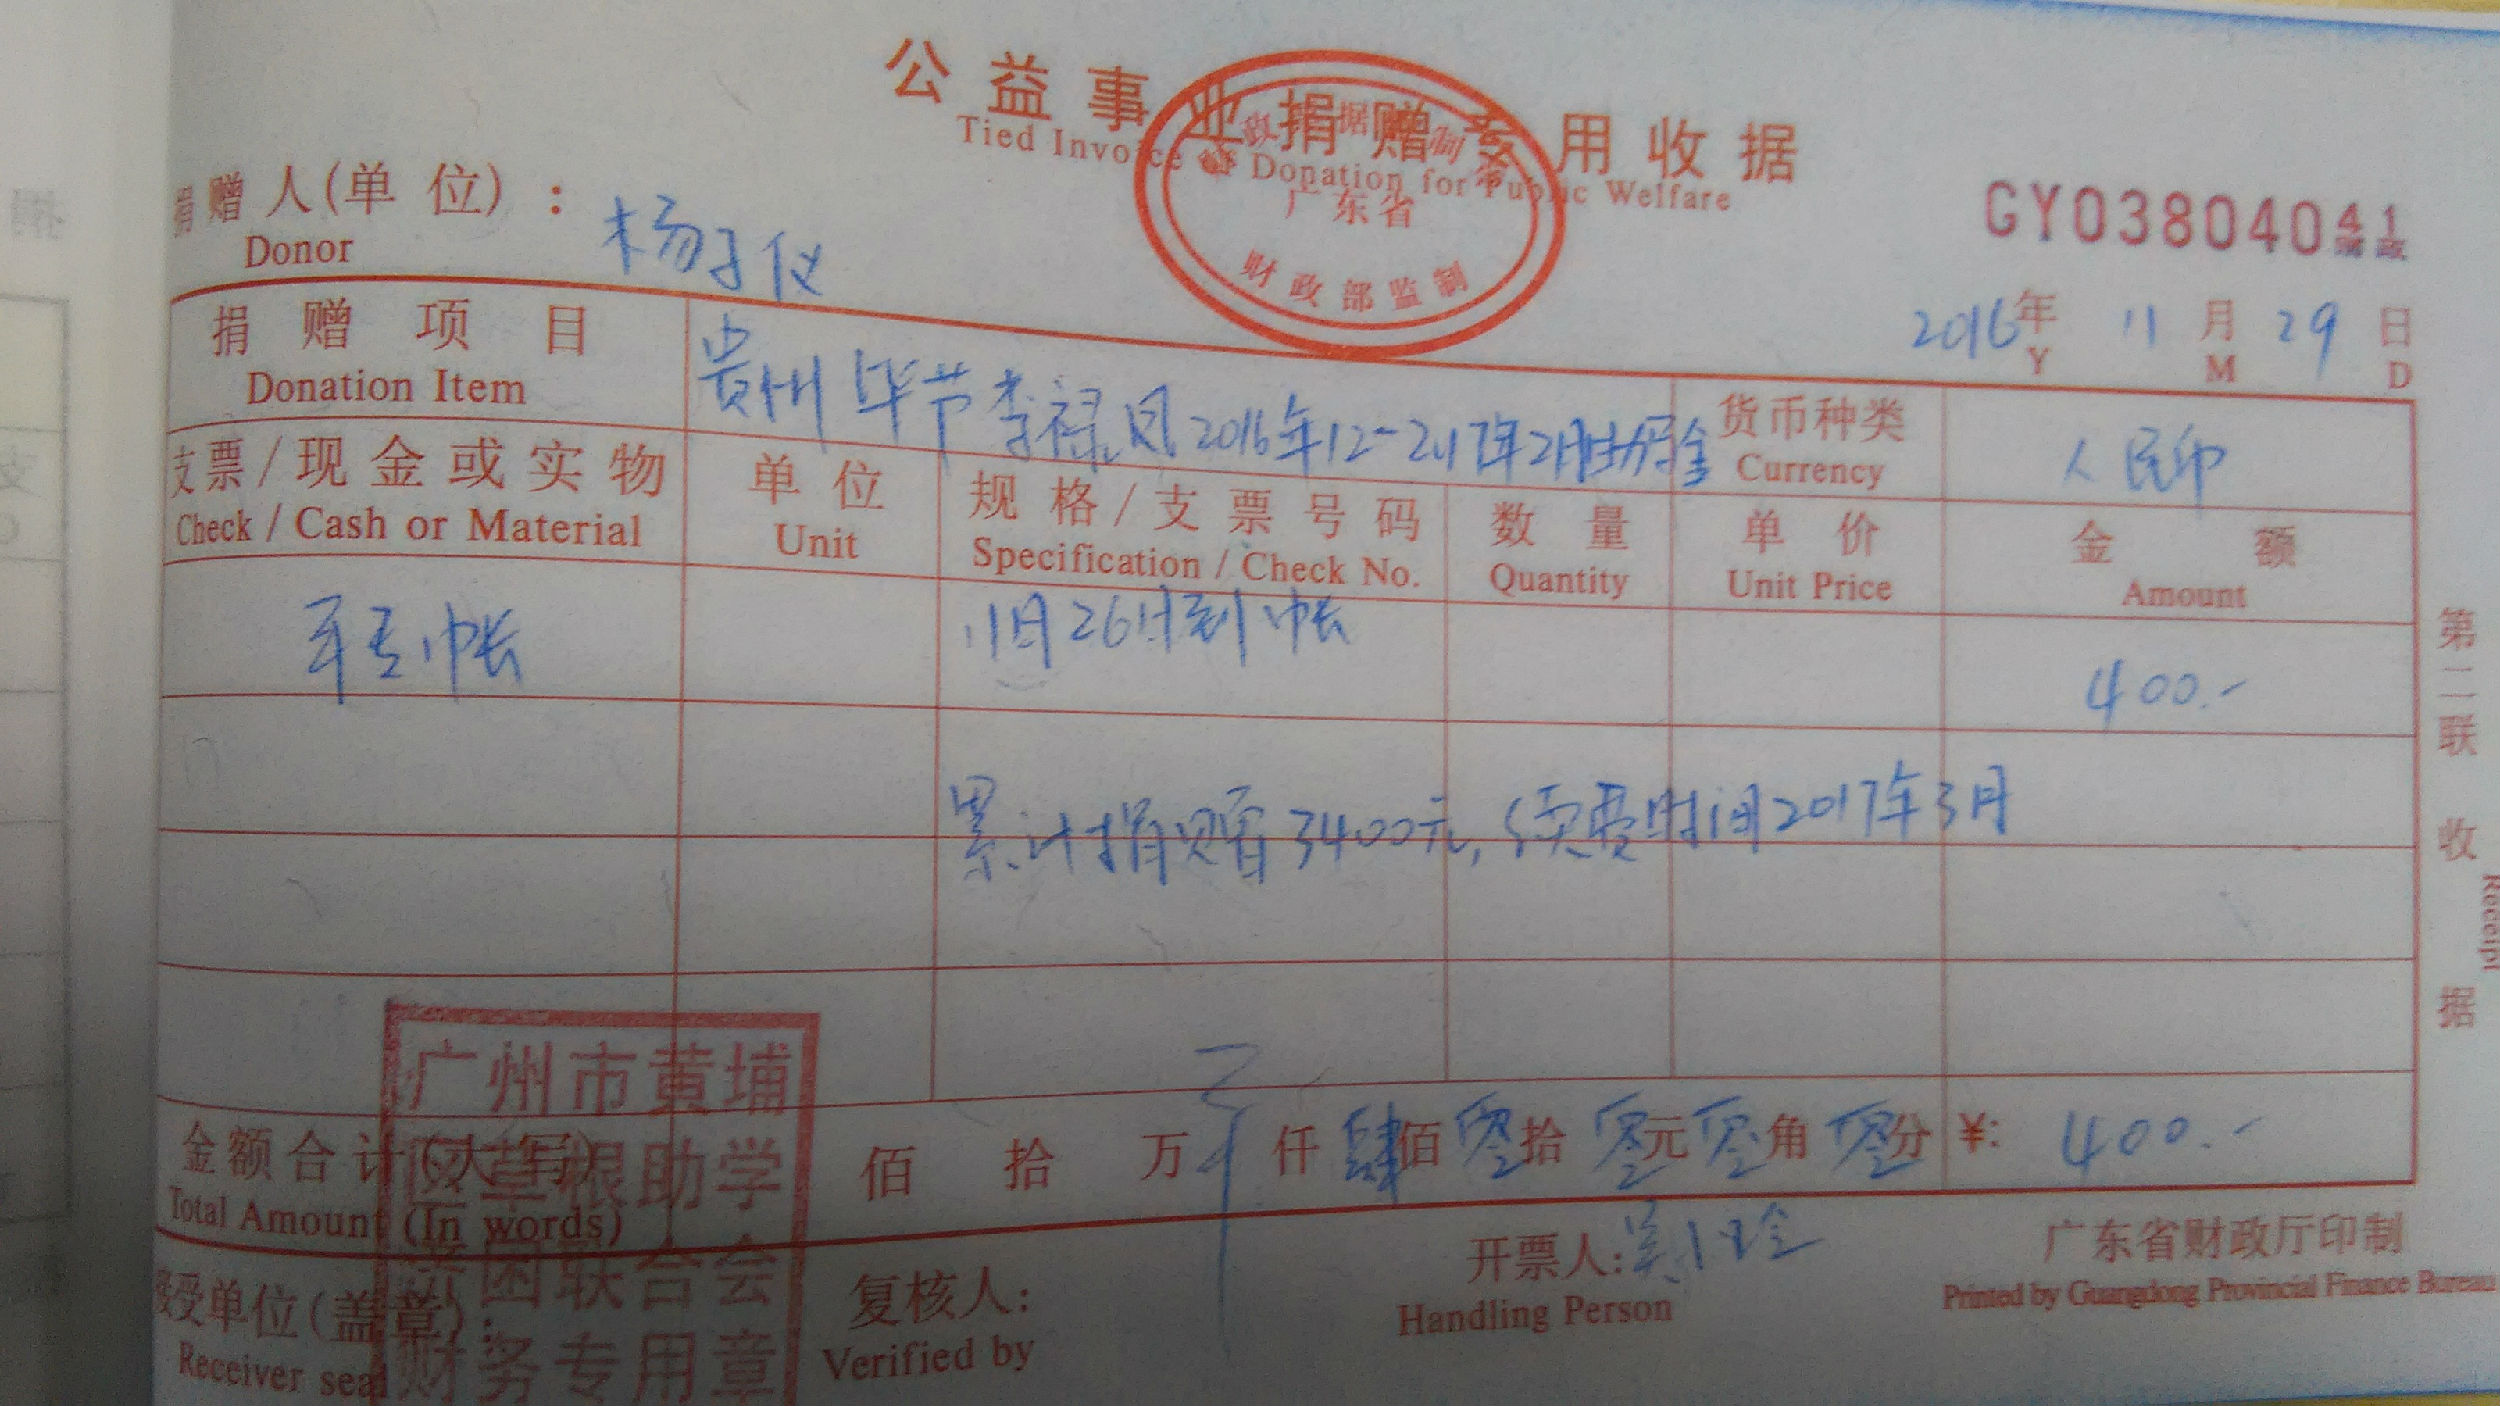 公益事业捐赠专用收据
Tied Invoice of Donation for Public Welfare
广东省
财政部监制
GY03804041
捐赠人(单位)：杨子仪
Donor
2016年 11月 29日
Y M D
捐赠项目 贵州毕节李禄 2016年12-2017年2月 货币种类 人民币
Donation Item Currency
支票/现金或实物 单位 规格/支票号码 数量 单价 金额
Check / Cash or Material Unit Specification / Check No. Quantity Unit Price Amount
11月26日到帐 400.-
累计捐赠3400元, 续费时间2017年3月
金额合计(大写) 佰 拾 万 仟 肆佰 零拾 零元 零角 零分 ¥: 400.-
Total Amount (In words)
接受单位(盖章): 复核人: 开票人: 广东省财政厅印制
Receiver seal Verified by Handling Person Printed by Guangdong Provincial Finance Bureau
广州市黄埔
区草根助学
济困联合会
财务专用章
第二联 收据
Receipt